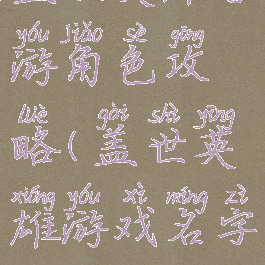 yóu jiǎo sè gōng
游角色攻
lüè gài shì yīng
略(盖世英
xióng yóu xì míng zì
雄游戏名字